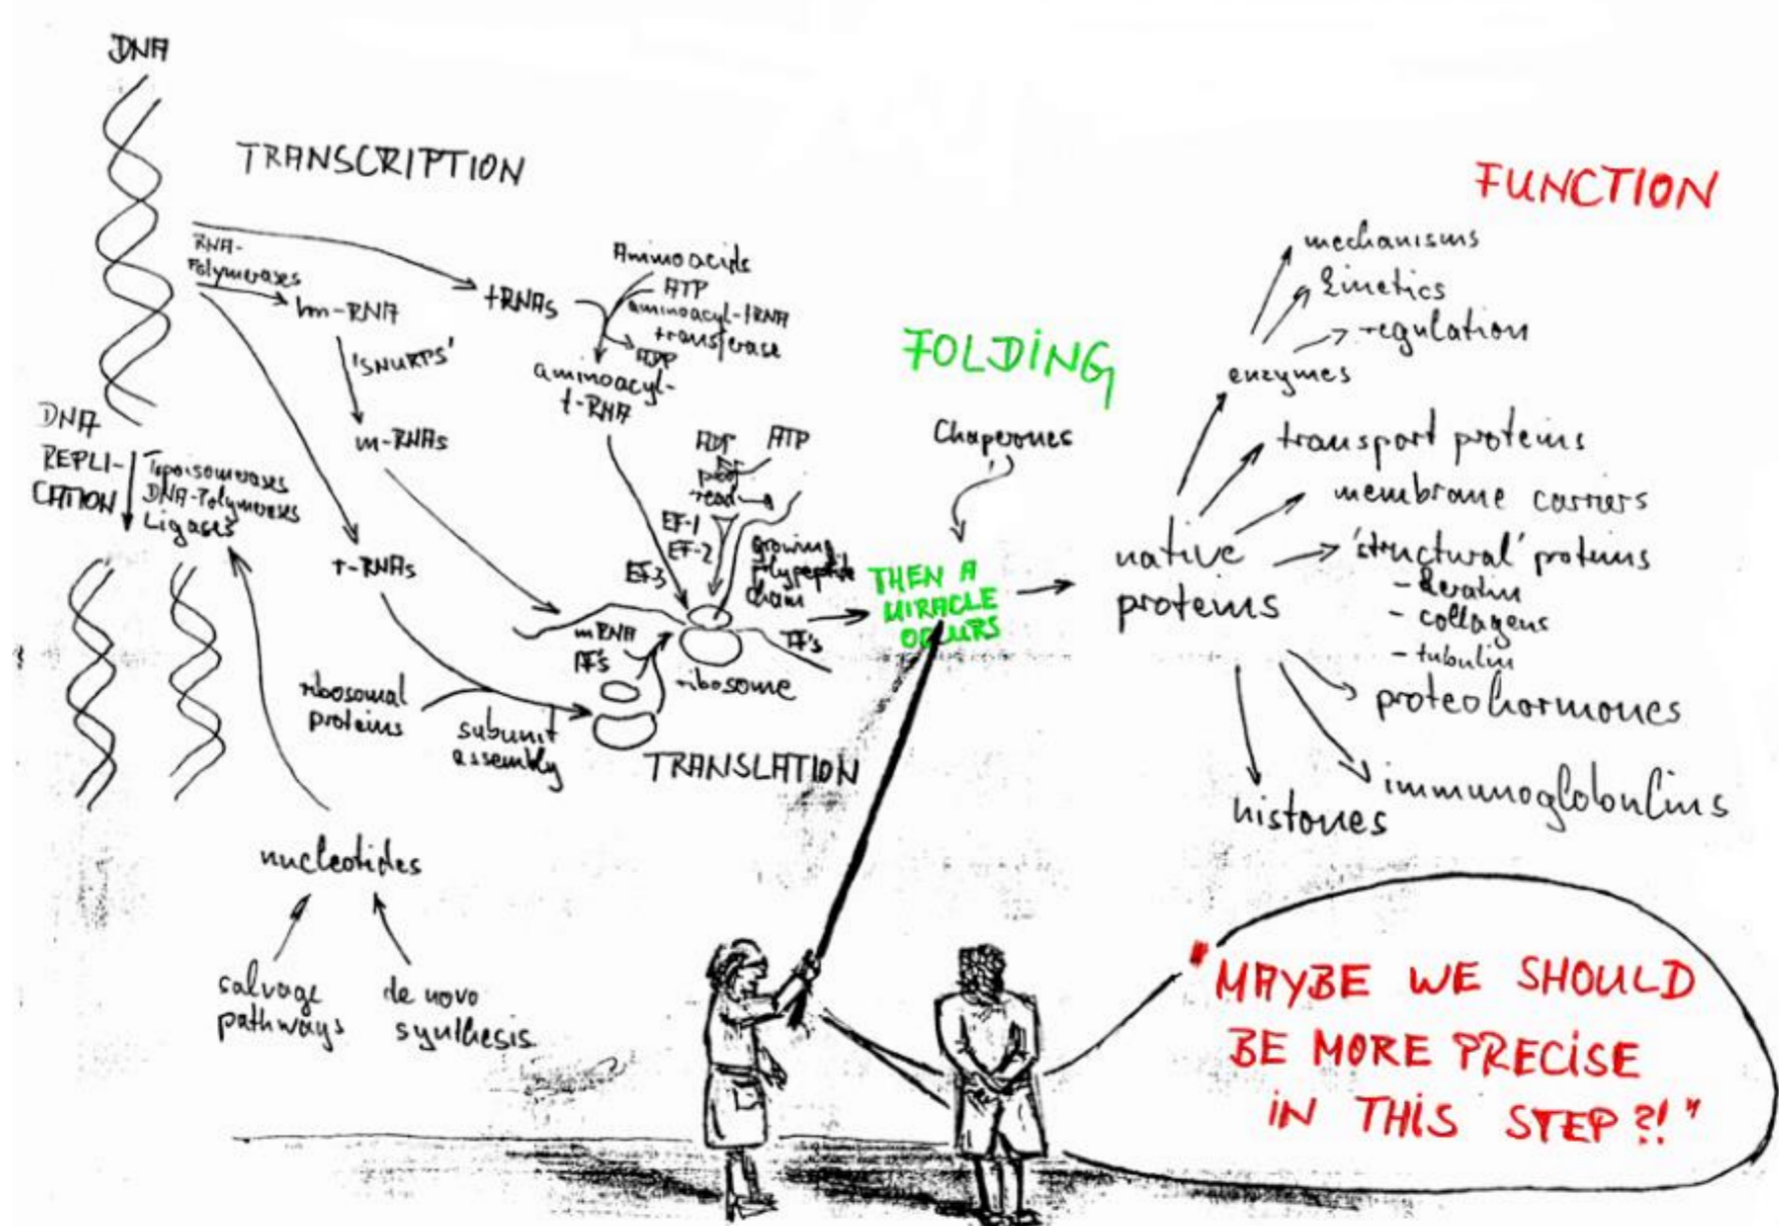 DNA
TRANSCRIPTION
FUNCTION
RNA-
Polymerases
hn-RNA
'SNURPS'
m-RNAs
r-RNAs
tRNAs
Aminoacids
ATP
aminoacyl-tRNA
transferase
ADP
aminoacyl-
t-RNA
DNA
REPLI-
CATION
Topoisomerases
DNA-Polymerases
Ligases
ADP
ATP
proof
read
EF-1
EF-2
EF-3
growing
polypeptide
chain
mRNA
IF's
TF's
ribosome
ribosomal
proteins
subunit
assembly
TRANSLATION
nucleotides
salvage
pathways
de novo
synthesis
FOLDING
Chaperones
THEN A
MIRACLE
OCCURS
native
proteins
mechanisms
kinetics
regulation
enzymes
transport proteins
membrane carriers
'structural' proteins
- keratin
- collagens
- tubulin
proteohormones
immunoglobulins
histones
"MAYBE WE SHOULD
BE MORE PRECISE
IN THIS STEP?!"